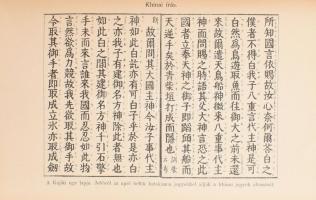 Khinai írás.
所知國言依賜故汝心奈何爾答白之
僕者不得白我子八重言代主神是可
白然爲鳥遊取魚而往御大之前未還
來故爾遣天鳥船神徵來八重事代主
神而問賜之時語其父大神言恐之此
國者立奉天神之御子即蹈傾其船而
天逆手矣於青柴垣打成而隱也
故爾問其大國主神今汝子事代主
神如此白訖亦有可白子乎於是亦白
之亦我子有建御名方神除此者無也
如此白之間其建御名方神千引石擎
手末而來言誰來我國而忍忍如此物
言然欲爲力競故我先欲取其御手故
令取其御手者即取成立氷亦取成劒
A Kojiki egy lapja. a khinai jegyek olvasását.